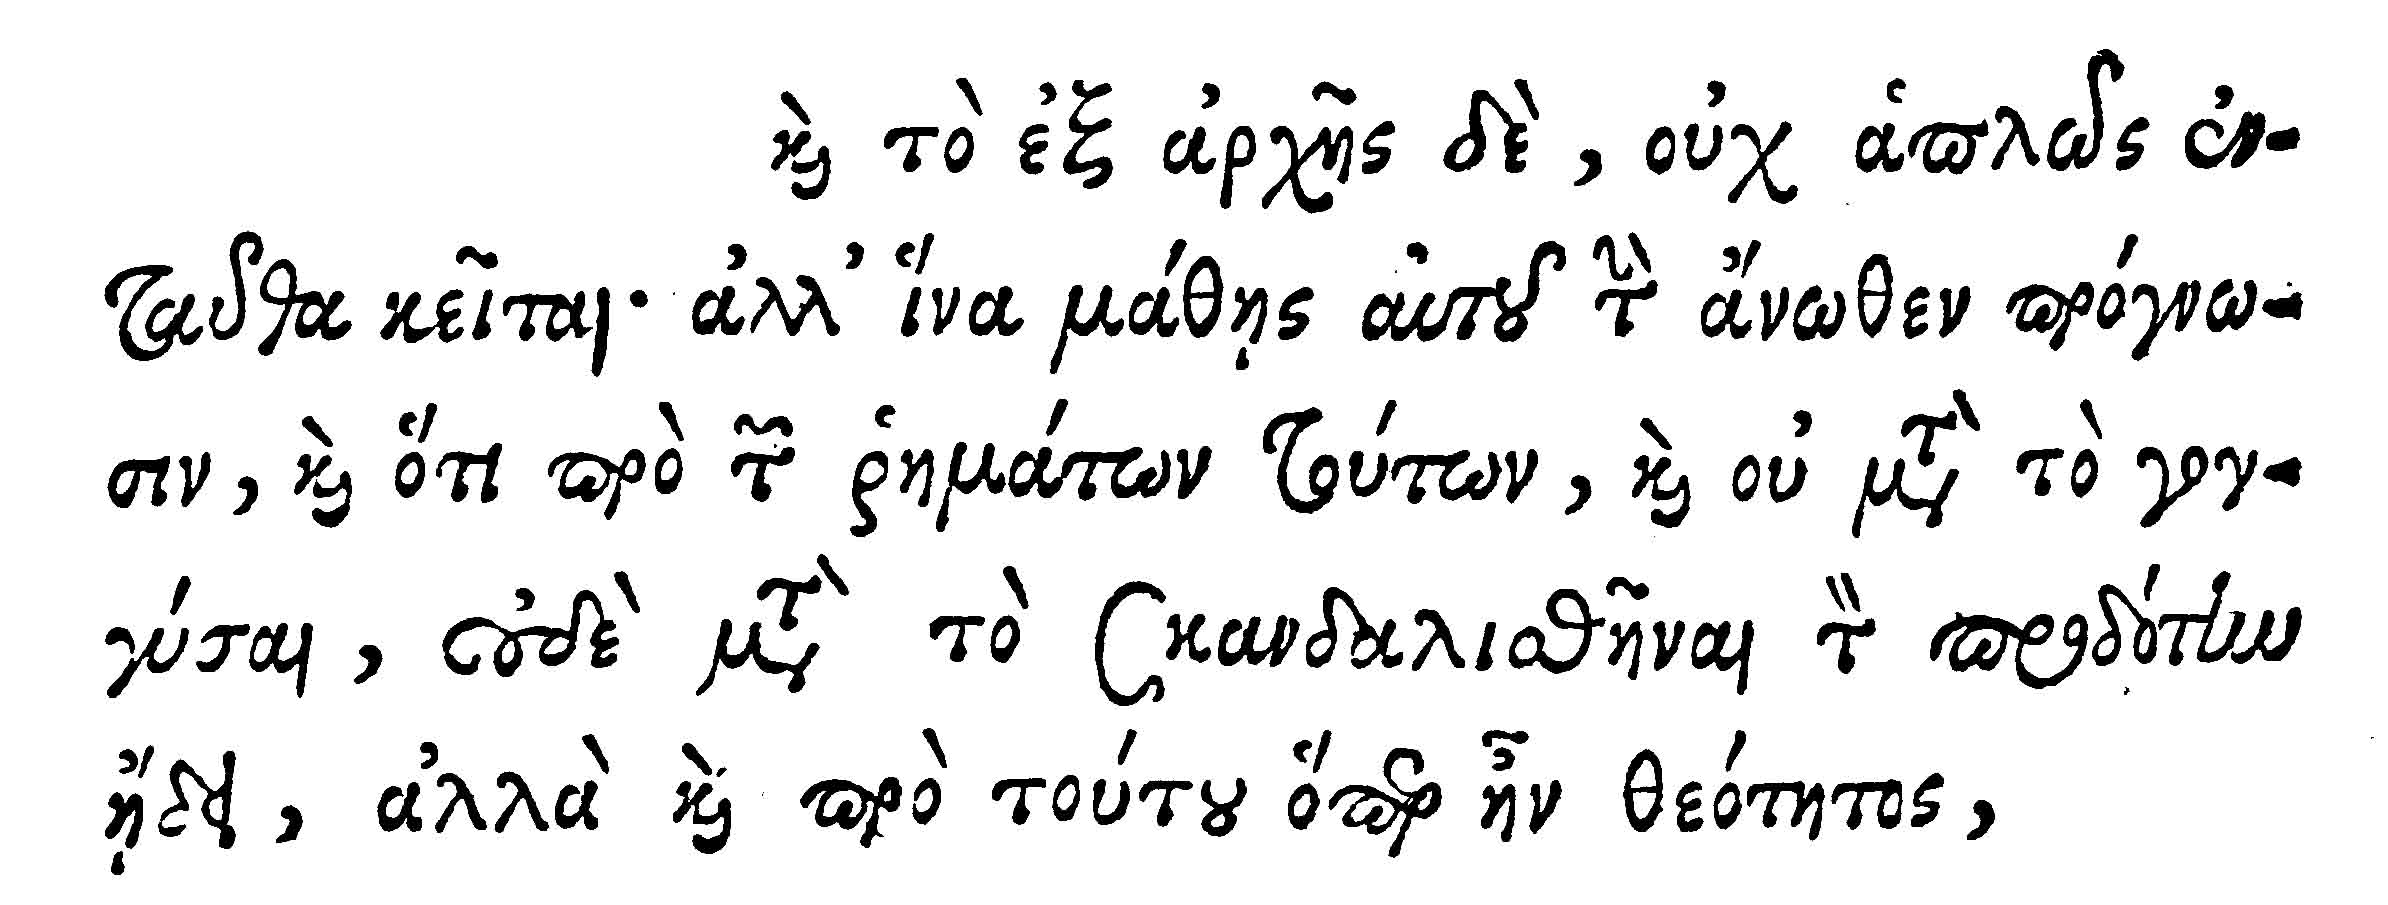 καὶ τὸ ἐξ ἀρχῆς δὲ, οὐχ ἁπλῶς ἐν-
ταῦθα κεῖται· ἀλλ' ἵνα μάθῃς αὐτοῦ τὴν ἄνωθεν πρόγνω-
σιν, καὶ ὅτι πρὸ τῶν ῥημάτων τούτων, καὶ οὐ μετὰ τὸ γογ-
γύσαι, οὐδὲ μετὰ τὸ σκανδαλισθῆναι τὸν προδότην
ᾔδει, ἀλλὰ καὶ πρὸ τούτου ὅπερ ἦν θεότητος,